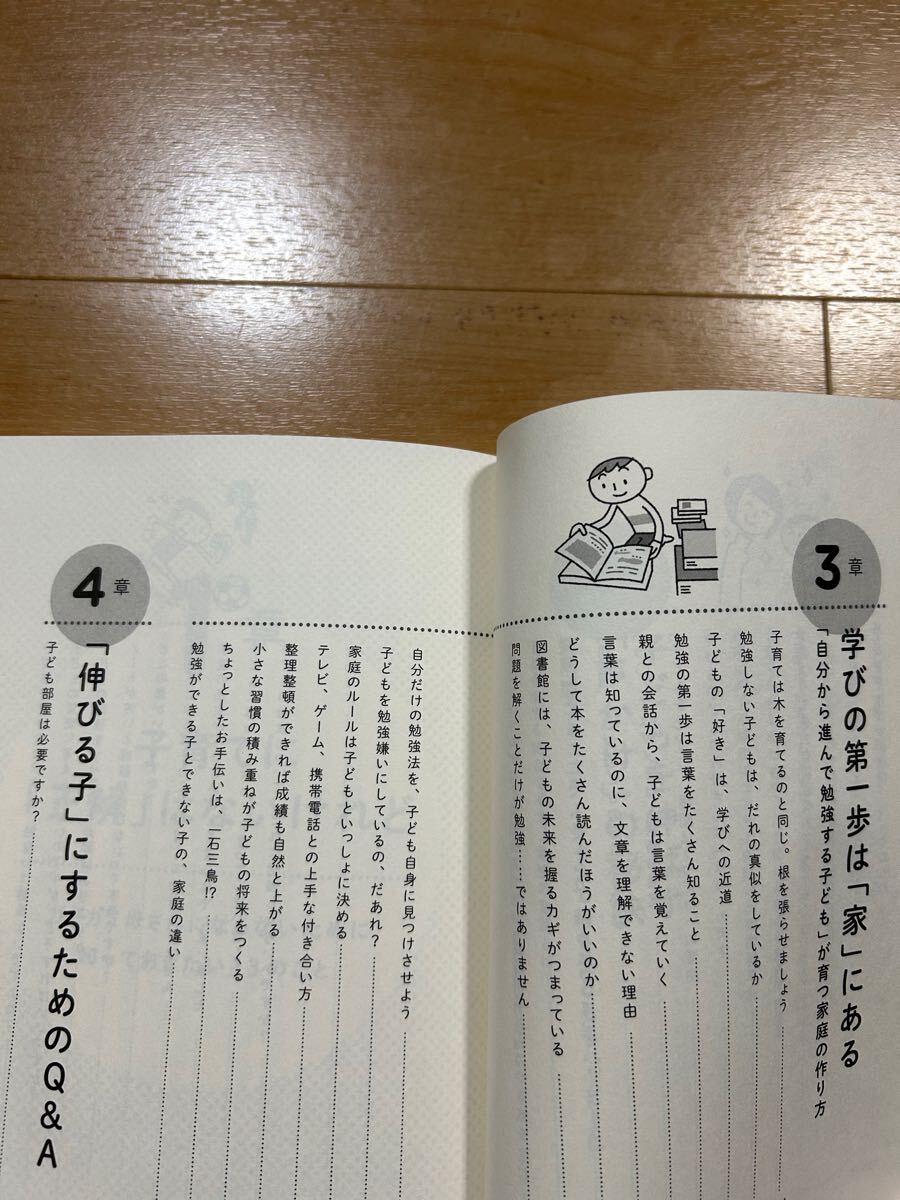 3章
学びの第一歩は「家」にある
「自分から進んで勉強する子ども」が育つ家庭の作り方
子育ては木を育てるのと同じ。根を張らせましょう
勉強しない子どもは、だれの真似をしているか
子どもの「好き」は、学びへの近道
勉強の第一歩は言葉をたくさん知ること
親との会話から、子どもは言葉を覚えていく
言葉は知っているのに、文章を理解できない理由
どうして本をたくさん読んだほうがいいのか
図書館には、子どもの未来を握るカギがつまっている
問題を解くことだけが勉強……ではありません
自分だけの勉強法を、子ども自身に見つけさせよう
子どもを勉強嫌いにしているの、だあれ?
家庭のルールは子どもといっしょに決める
テレビ、ゲーム、携帯電話との上手な付き合い方
整理整頓ができれば成績も自然と上がる
小さな習慣の積み重ねが子どもの将来をつくる
ちょっとしたお手伝いは、一石三鳥!?
勉強ができる子とできない子の、家庭の違い
4章
「伸びる子」にするためのQ&A
子ども部屋は必要ですか?